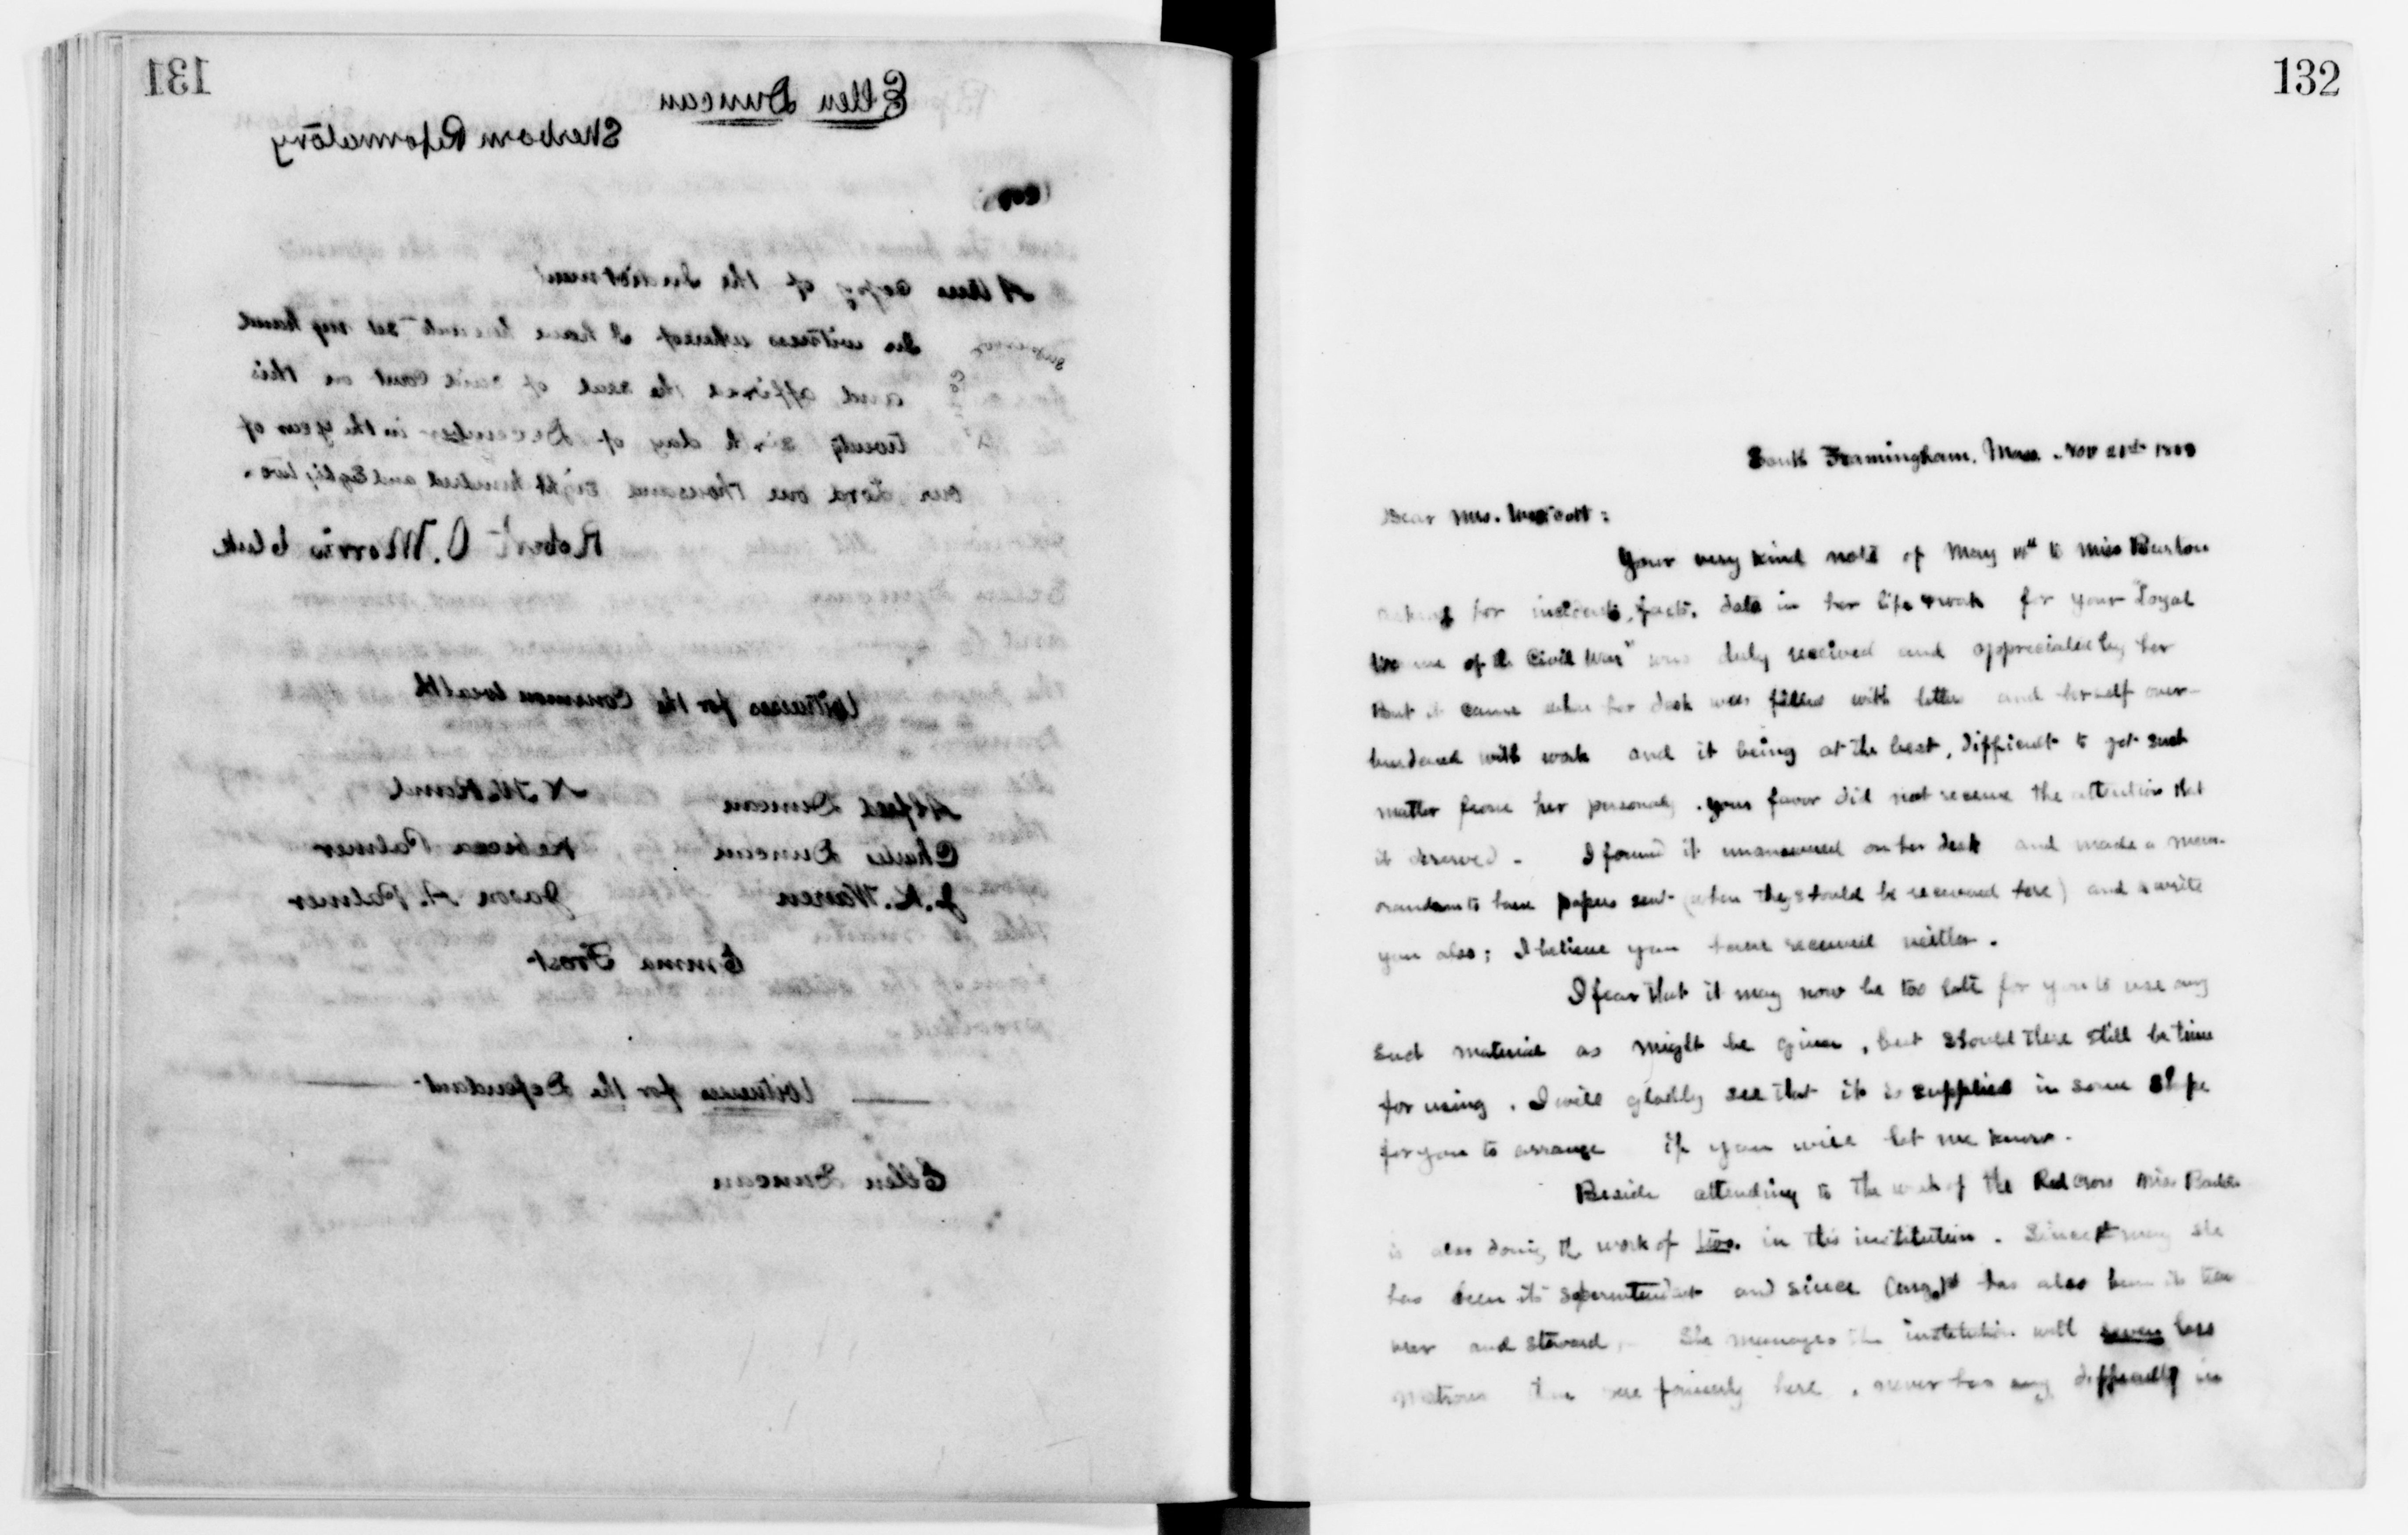 131
Ellen Duncan
Sherborn Reformatory
(Copy)
A true copy of the Indictment
In witness whereof I have hereunto set my hand
and affixed the seal of said Court on this
twenty sixth day of December in the year of
our Lord one thousand eight hundred and Eighty two.
Robert O. Morris Clerk
Witnesses for the Commonwealth
Alfred Duncan
Charles Duncan Rebecca Palmer
J. K. Warren Jason A. Palmer
Emma Frost
Witnesses for the Defendant
Ellen Duncan
132
South Framingham, Mass. Nov
Dear Mrs.
Your very kind note of May to Miss Barton
asking for incidents, facts, data in her life work for your "Loyal
of the Civil War" was duly received and appreciated by her
But it came when her desk was filled with letters and herself over-
burdened with work and it being at the best, difficult to get such
matter from her personally, your favor did not receive the attention that
it deserved - I found it unanswered on her desk and made a mem-
orandum to have papers sent (when they should be received here) and to write
you also; I believe you have received neither.
I fear that it may now be too late for you to use any
such material as might be given, but should there still be time
for using, I will gladly see that it is supplied in some shape
for you to arrange if you will let me know.
Beside attending to the work of the Red Cross Miss Barton
is also doing the work of two in this institution. Since May she
has been its superintendent and since has also been its treas
urer and steward, She manages the institution with seven less
matrons than were formerly here, never has any difficulty in